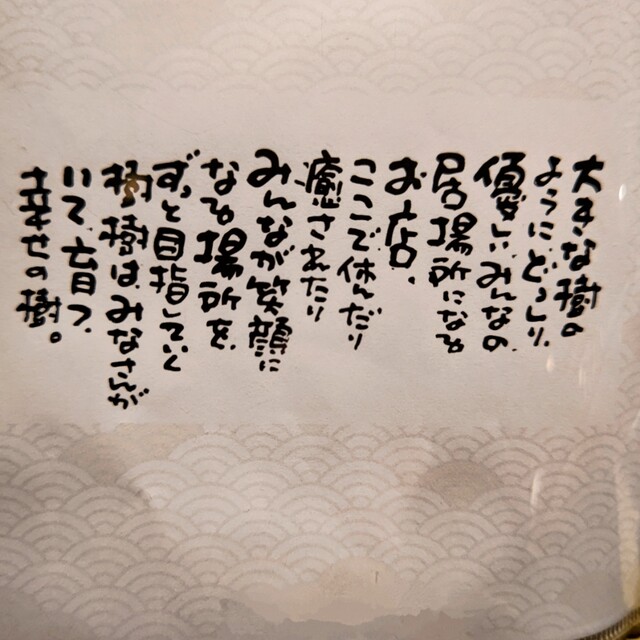 大きな樹の
ようにどっしり、
優しい、みんなの
居場所になる
お店、
ここで休んだり
癒されたり
みんなが笑顔に
なる場所を、
ずっと目指していく
樹樹は、みなさんが
いて、育つ、
幸せの樹。